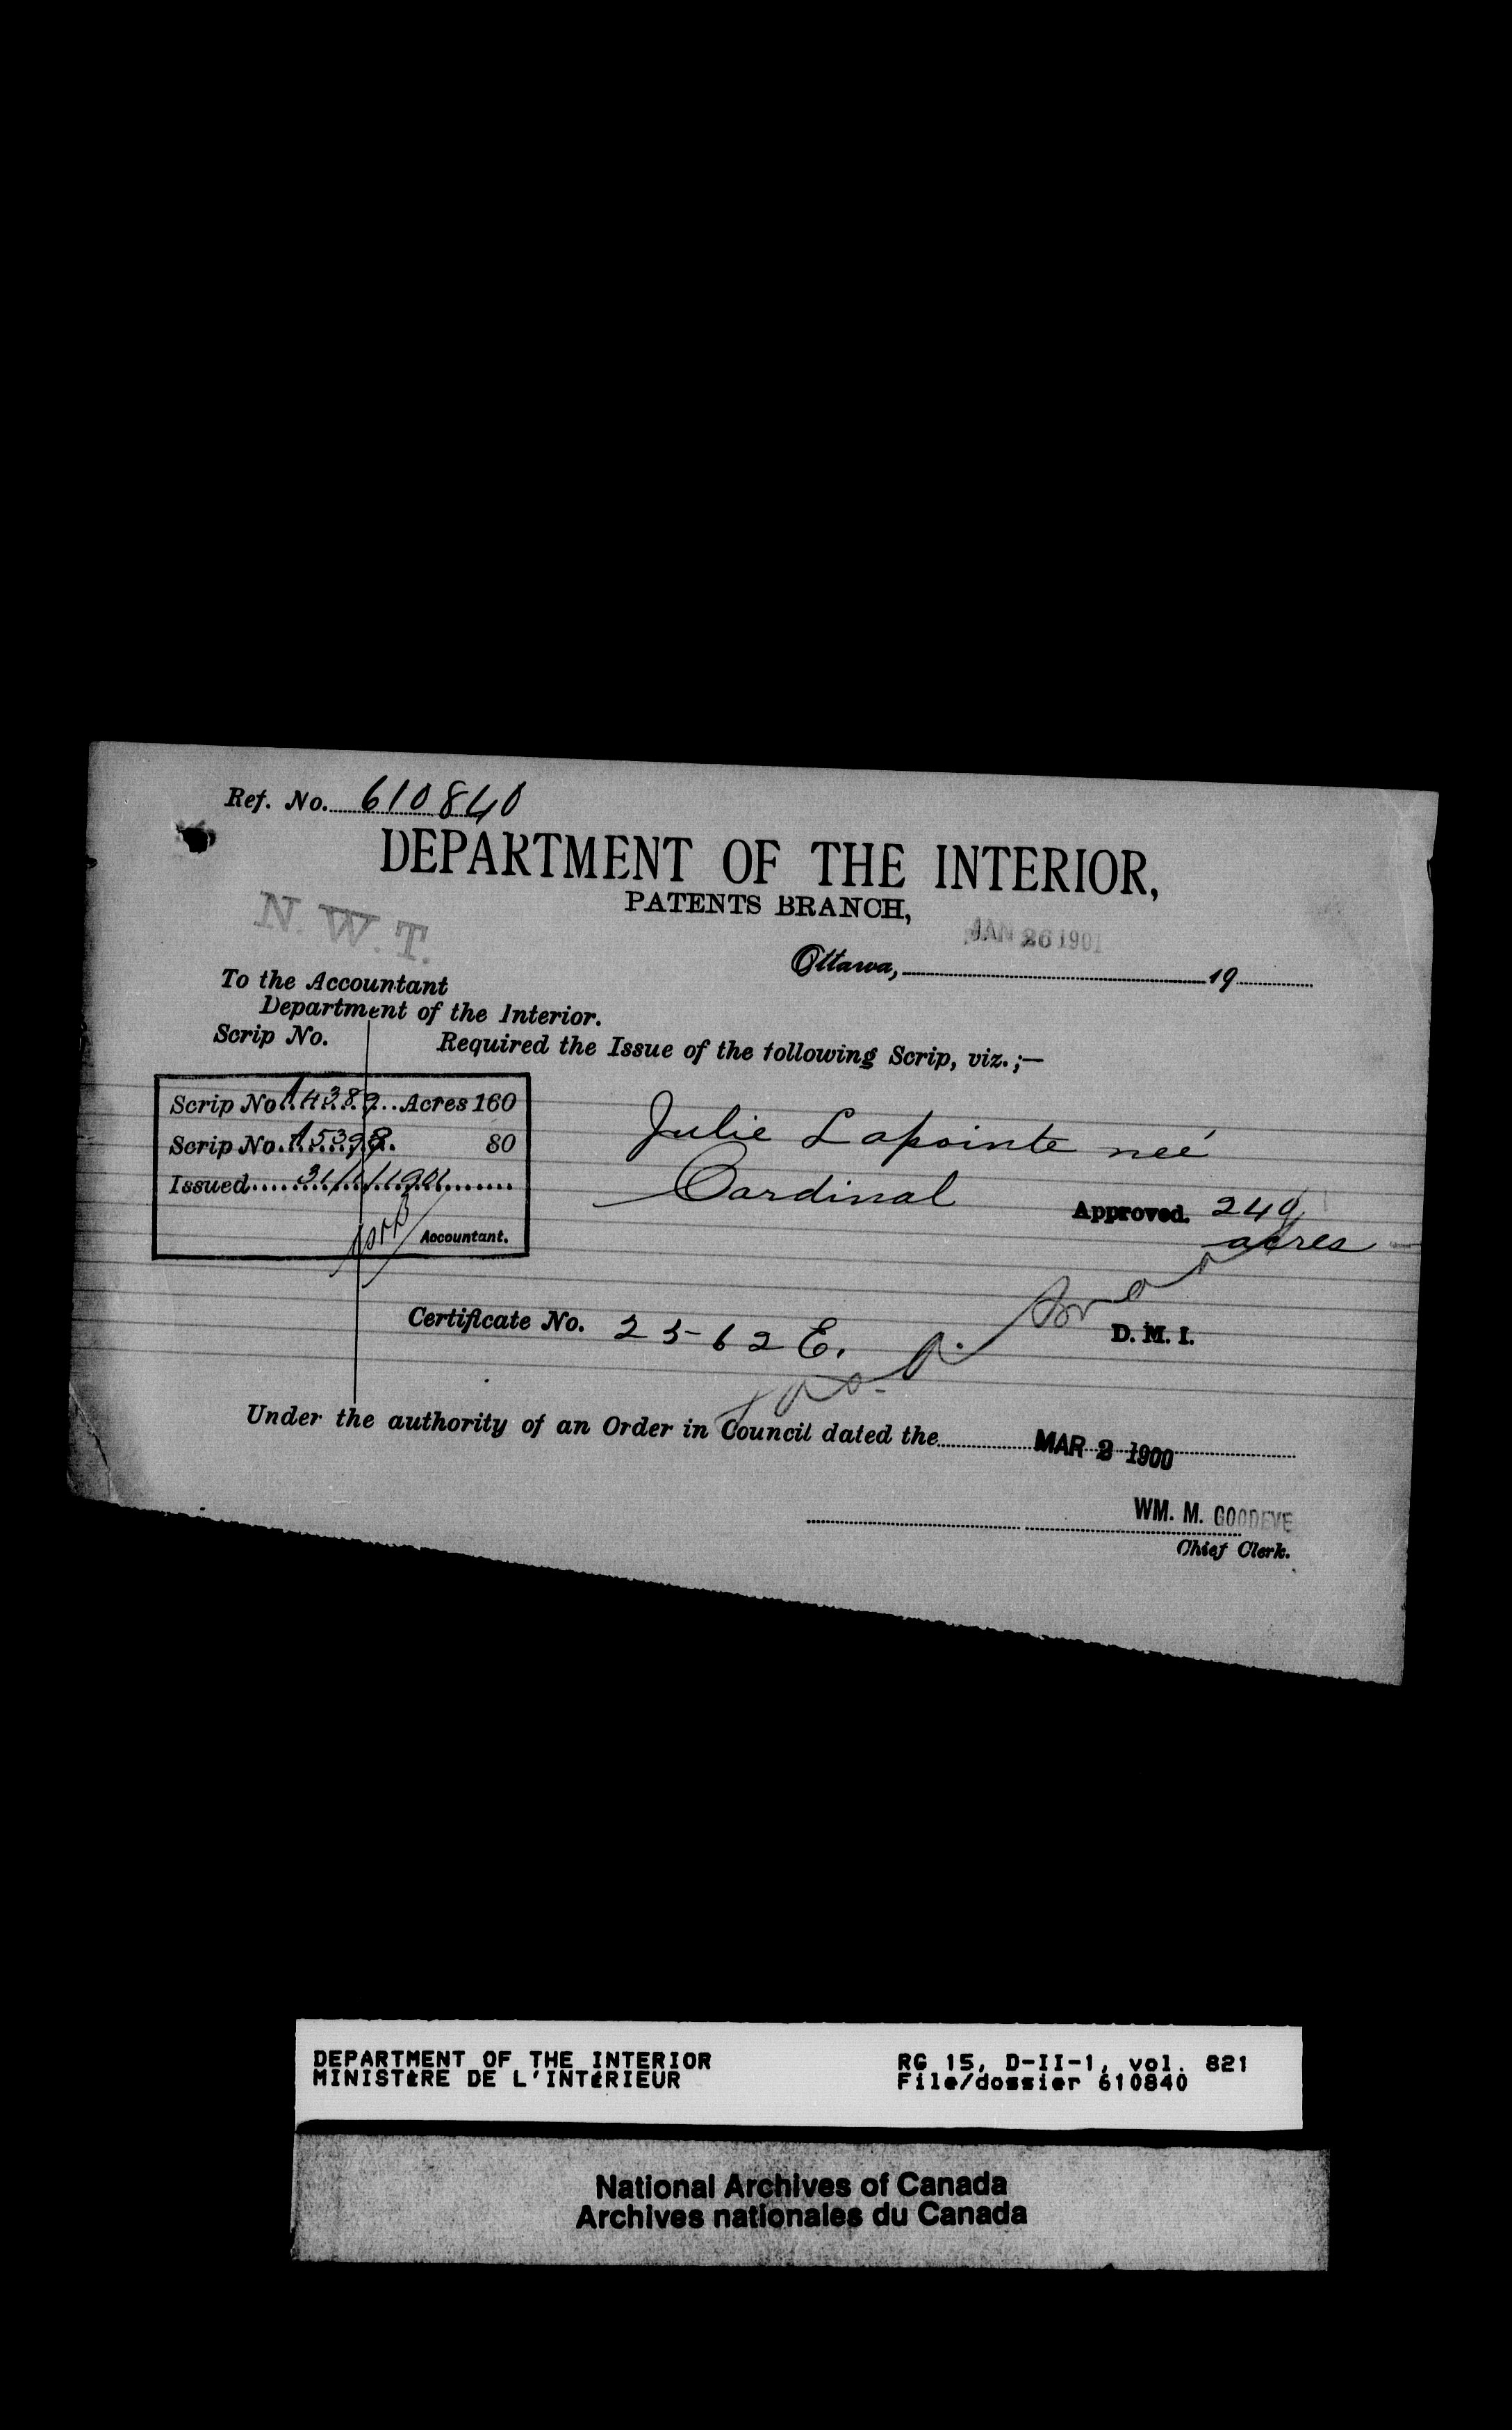 Ref. No. 610840
DEPARTMENT OF THE INTERIOR,
PATENTS BRANCH,
N. W. T.
JAN 26 1901
Ottawa, 19
To the Accountant
Department of the Interior.
Scrip No.
Required the Issue of the following Scrip, viz.;—
Scrip No. A4389 Acres 160
Scrip No. A5398. 80
Issued 31/1/1901
Accountant.
Julie Lapointe neé
Cardinal
Approved. 240
acres
Certificate No. 2562 E.
D. M. I.
Under the authority of an Order in Council dated the MAR 2 1900
WM. M. GOODEVE
Chief Clerk.
DEPARTMENT OF THE INTERIOR
MINISTÈRE DE L'INTÉRIEUR
RG 15, D-II-1, vol. 821
File/dossier 610840
National Archives of Canada
Archives nationales du Canada